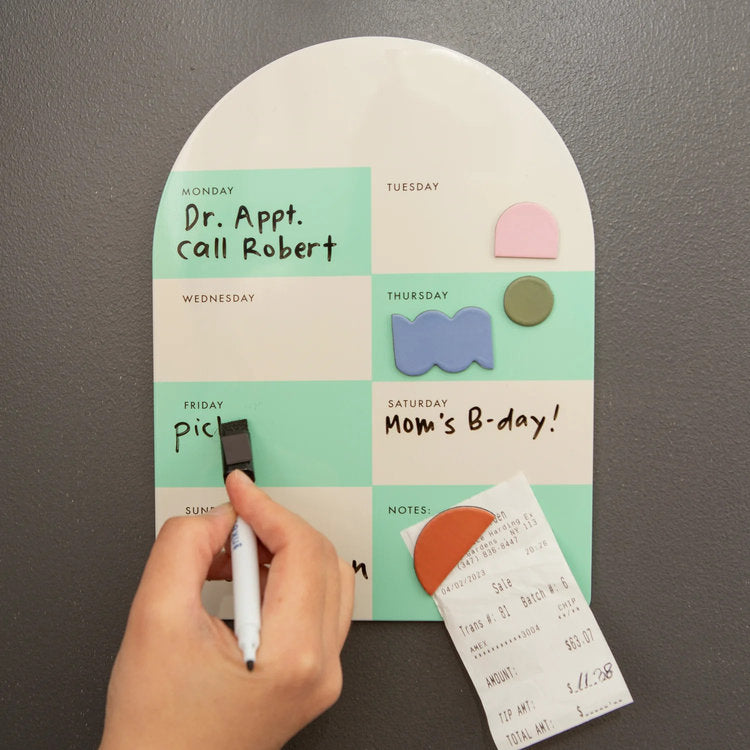 MONDAY
Dr. Appt.
call Robert
TUESDAY
WEDNESDAY
THURSDAY
FRIDAY
SATURDAY
Mom's B-day!
NOTES:
Harding Ex
Gardens NY 113
(347) 836-8447
04/02/2023 20:26
Sale
Trans #: 81 Batch #: 6
AMEX CHIP
************3004 **/**
AMOUNT: $63.07
TIP AMT: $
TOTAL AMT: $